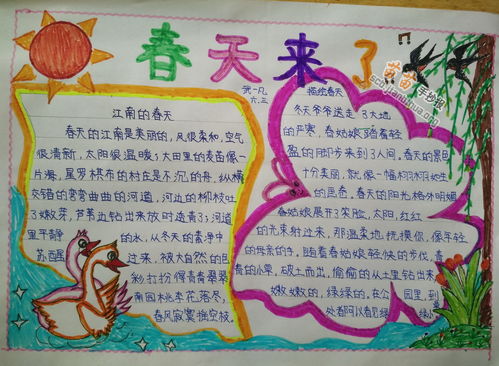 春天来了
武一凡
六.三
江南的春天
春天的江南是美丽的，风很柔和，空气
很清新，太阳很温暖；大田里的麦苗像一
片海，星罗棋布的村庄是不沉的舟，纵横
交错的弯弯曲曲的河道，河边的柳枝吐
了嫩芽，芦苇边钻出来放时透青了；河道
里平静的水，从冬天的素净中
苏醒过来，被大自然的
彩打扮得青青翠翠
南园桃李花落尽，
春风寂寞摇空枝。
描绘春天
冬天爷爷送走了大地
的严寒，春姑娘踏着轻
盈的脚步来到了人间。春天的景色
十分美丽，就像一幅栩栩如生
的画卷，春天的阳光格外明媚
春姑娘展开了笑脸，太阳，红红
的光束射过来，那温柔地抚摸你，像年轻
的母亲的手，随着春姑娘轻快的步伐，青
青的小草，破土而出，偷偷的从土里钻出来
嫩嫩的，绿绿的，在公园里，到
处都可以看见绿
苗苗手抄报